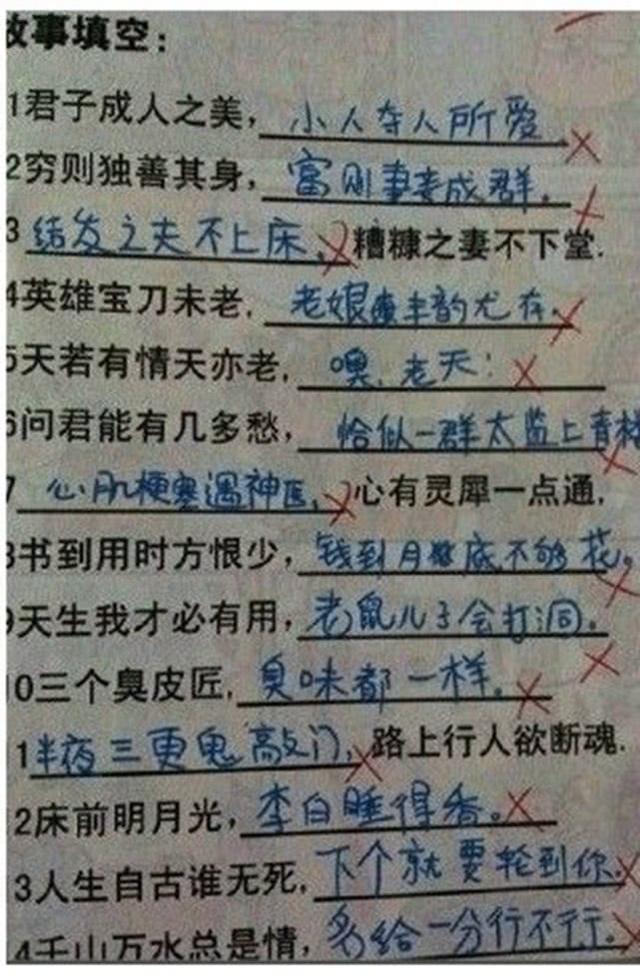 故事填空：
1君子成人之美，小人夺人所爱
2穷则独善其身，富则妻妾成群。
3 结发之夫不上床，糟糠之妻不下堂.
4英雄宝刀未老，老娘丰韵尤存.
5天若有情天亦老，噢，老天！
6问君能有几多愁，恰似一群太监上青楼
7 心肌梗塞遇神医，心有灵犀一点通.
8书到用时方恨少，钱到月底不够花。
9天生我才必有用，老鼠儿子会打洞。
10三个臭皮匠，臭味都一样。
1半夜三更鬼敲门，路上行人欲断魂.
2床前明月光，李白睡得香。
3人生自古谁无死，下个就要轮到你.
4千山万水总是情，多给一分行不行.